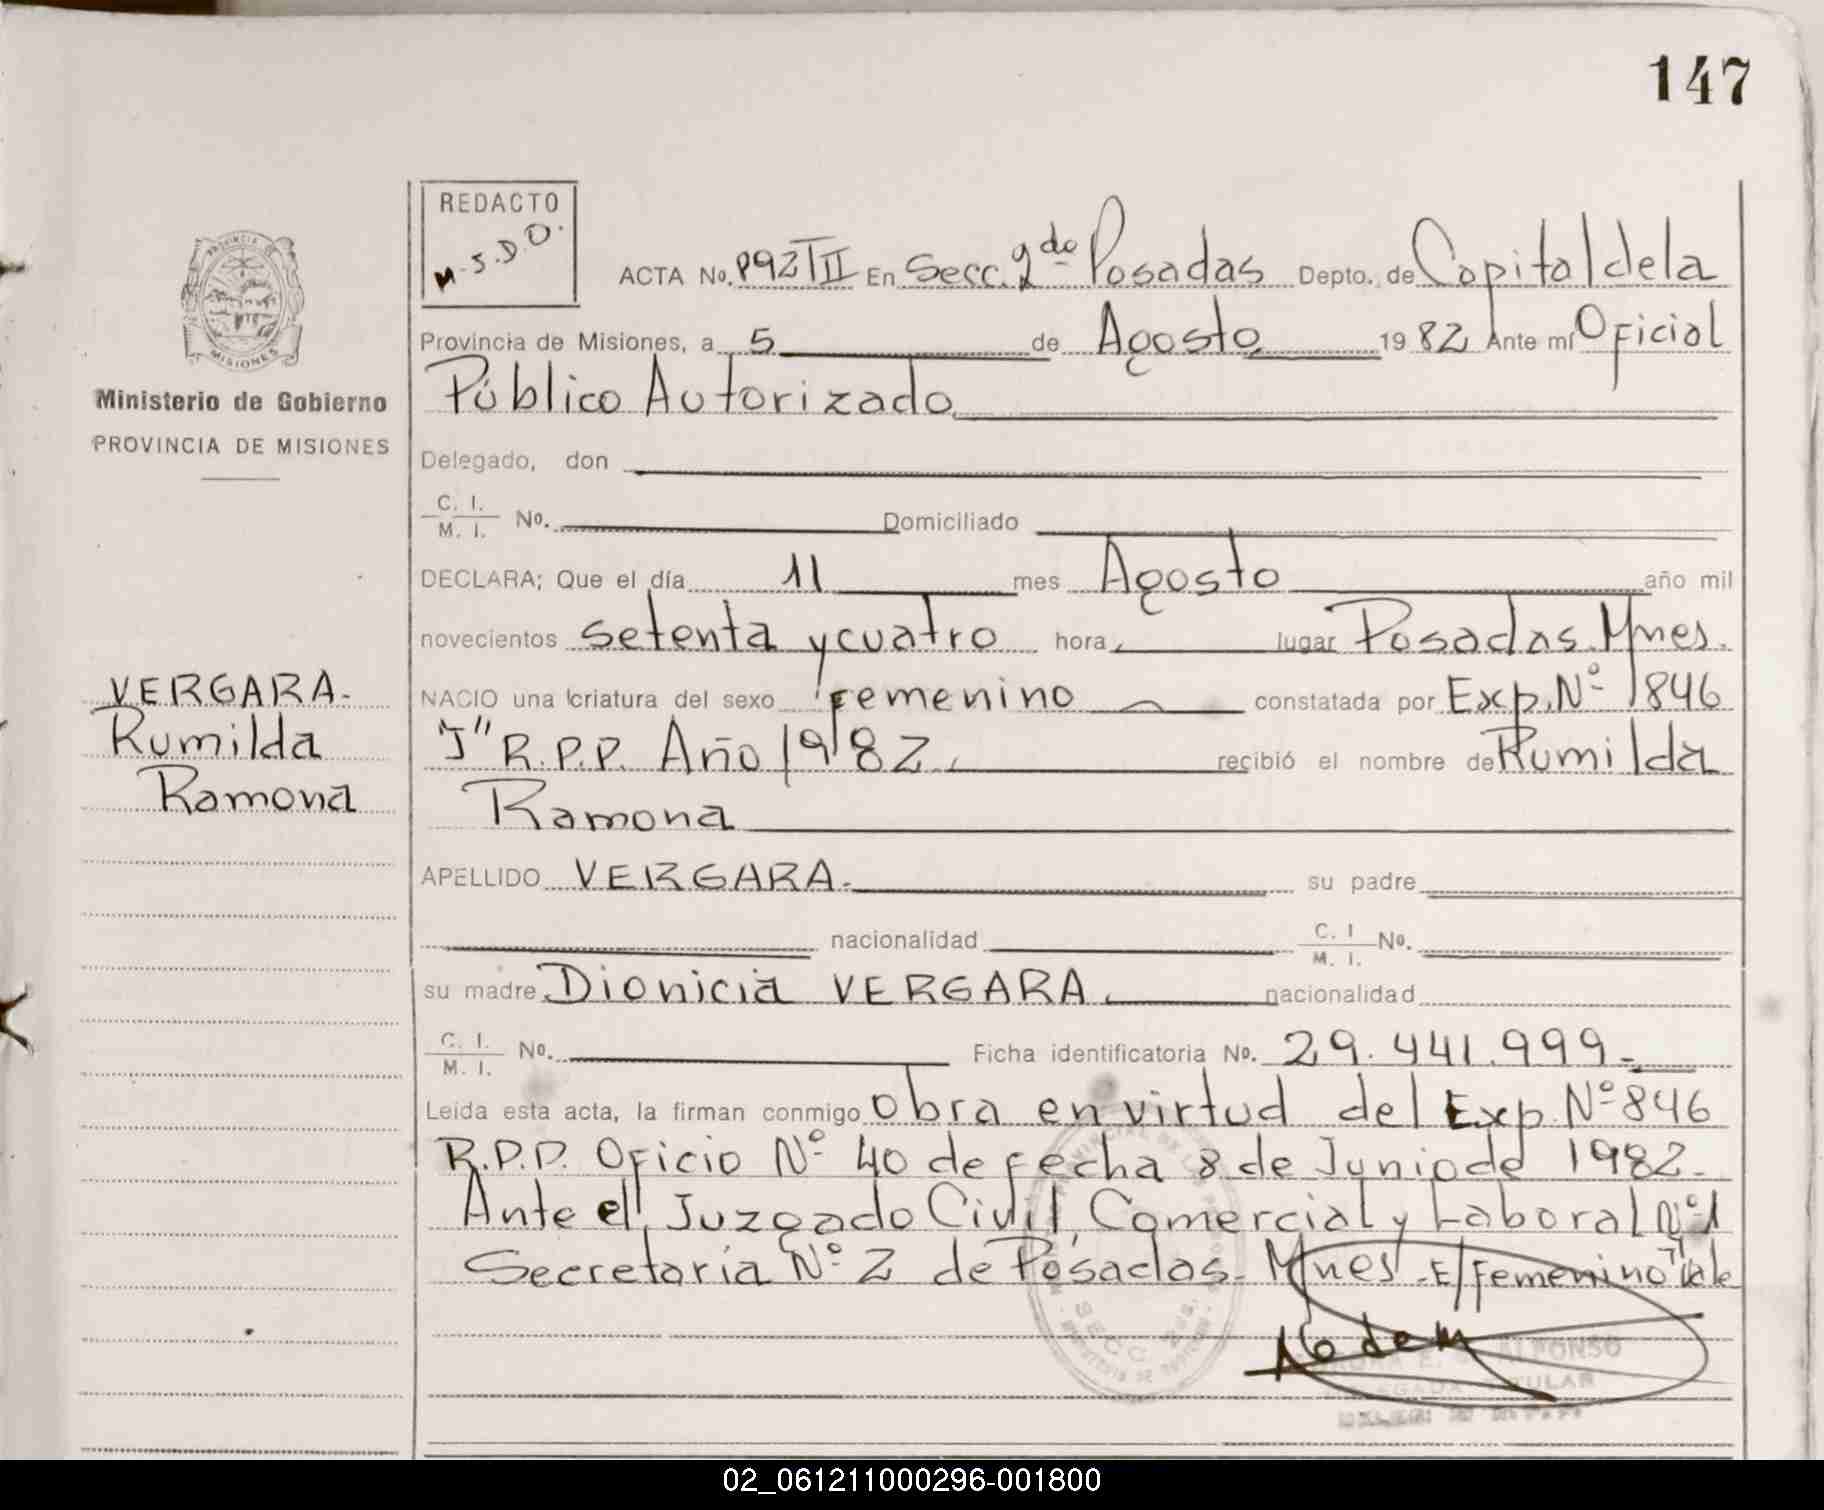 147
REDACTO
M.S.D.O.
PROVINCIA DE
MISIONES
Ministerio de Gobierno
PROVINCIA DE MISIONES
VERGARA-
Rumilda
Ramona
ACTA No. 892 T II En Secc. 2da Posadas Depto. de Capital de la
Provincia de Misiones, a 5 de Agosto 1982 Ante mí Oficial
Público Autorizado
Delegado, don
C. I. / M. I. No. Domiciliado
DECLARA; Que el día 11 mes Agosto año mil
novecientos setenta y cuatro hora, lugar Posadas. Mnes.
NACIO una criatura del sexo femenino constatada por Exp. Nº 1846
"J" R.P.P. Año 1982, recibió el nombre de Rumilda
Ramona
APELLIDO VERGARA. su padre
nacionalidad C. I / M. I. No.
su madre Dionicia VERGARA. nacionalidad
C. I. / M. I. No. Ficha identificatoria No. 29.441.999.-
Leída esta acta, la firman conmigo obra en virtud del Exp. Nº 846
R.P.P. Oficio Nº 40 de fecha 8 de Junio de 1982.
Ante el Juzgado Civil, Comercial y Laboral Nº 1
Secretaria Nº 2 de Posadas. Mnes. E/ Femenino Vale
ALFONSO
02_061211000296-001800